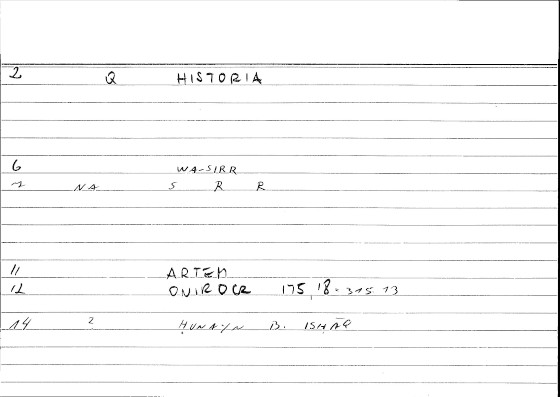 2 Q HISTORIA
6 WA-SIRR
7 NA S R R
11 ARTEM
12 ONIROCR 175,18 = 315 13
14 2 ḤUNAYN B. ISHĀQ